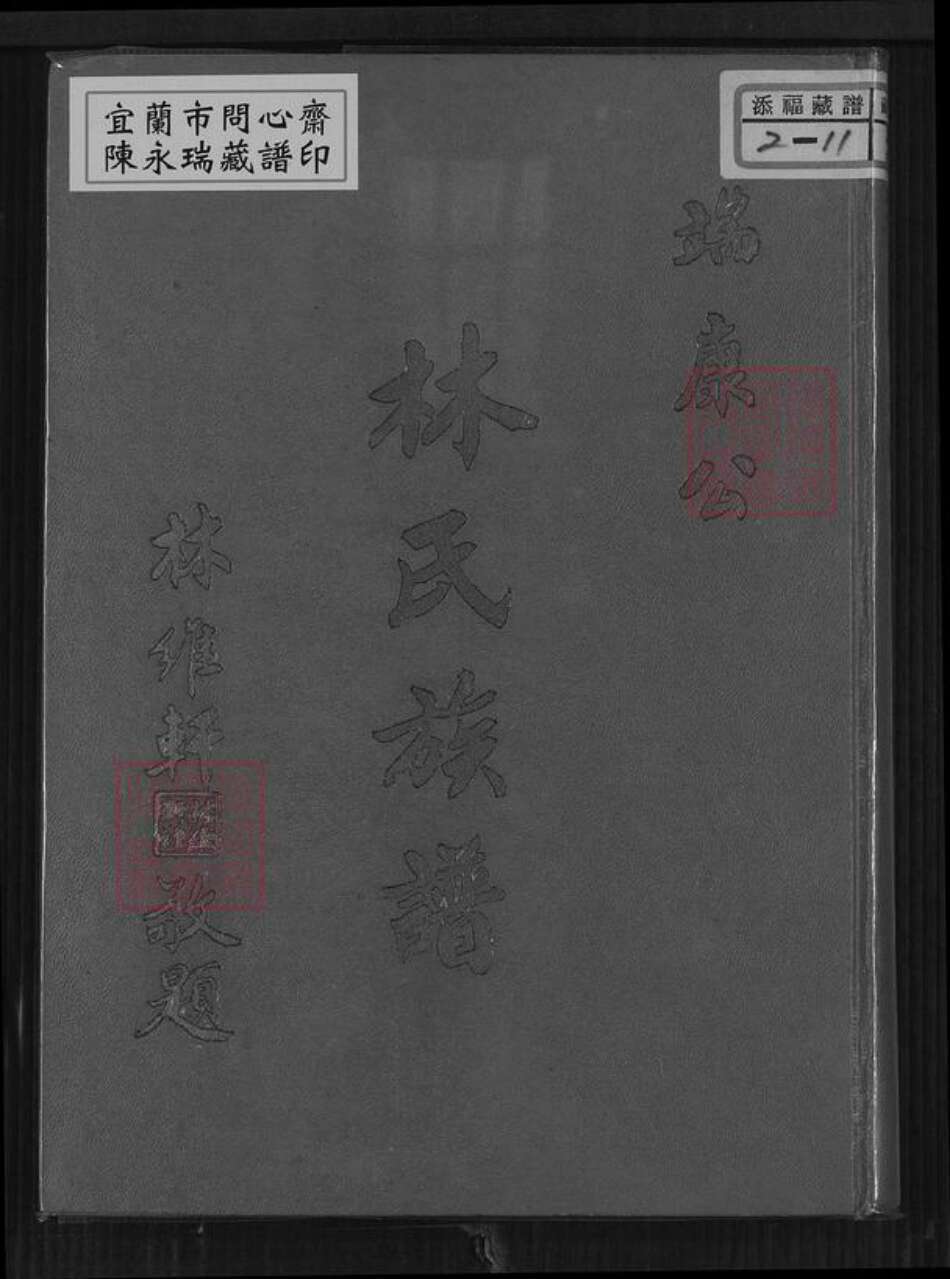 宜蘭市問心齋
陳永瑞藏譜印
添福藏譜
2-11
端康公
林氏族譜
林維軒
敬題